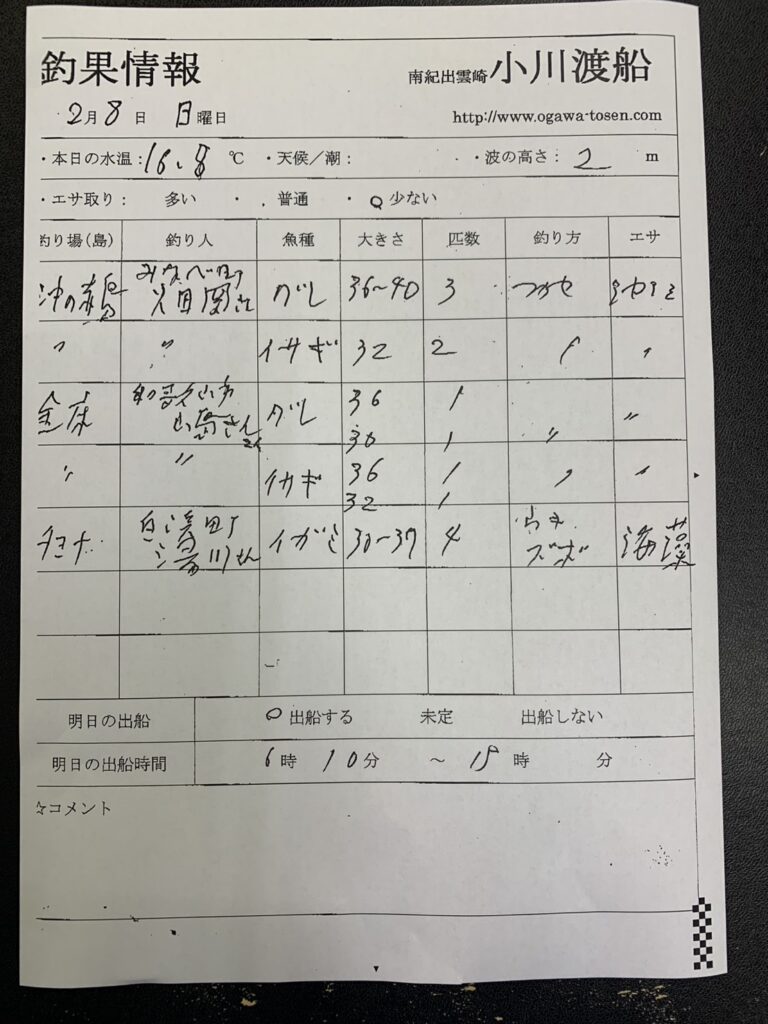 釣果情報
南紀出雲崎 小川渡船
2月 8日 日曜日
http://www.ogawa-tosen.com
・本日の水温：16.8 ℃ ・天候／潮： ・波の高さ： 2 m
・エサ取り： 多い ・ 普通 ・ ○少ない
釣り場(島) 釣り人 魚種 大きさ 匹数 釣り方 エサ
沖の赤島 みなべ町 グレ 36〜40 3
〃 〃 イサギ 32 2 〃 〃
和歌山市
グレ 36 1 〃 〃
30 1
〃 〃 イサギ 36 1 〃 〃
32 1
白浜町
湯川さん イガミ 30〜37 4 ズボ 海藻
明日の出船 ○出船する 未定 出船しない
明日の出船時間 6時 10分 〜 15時 分
☆コメント